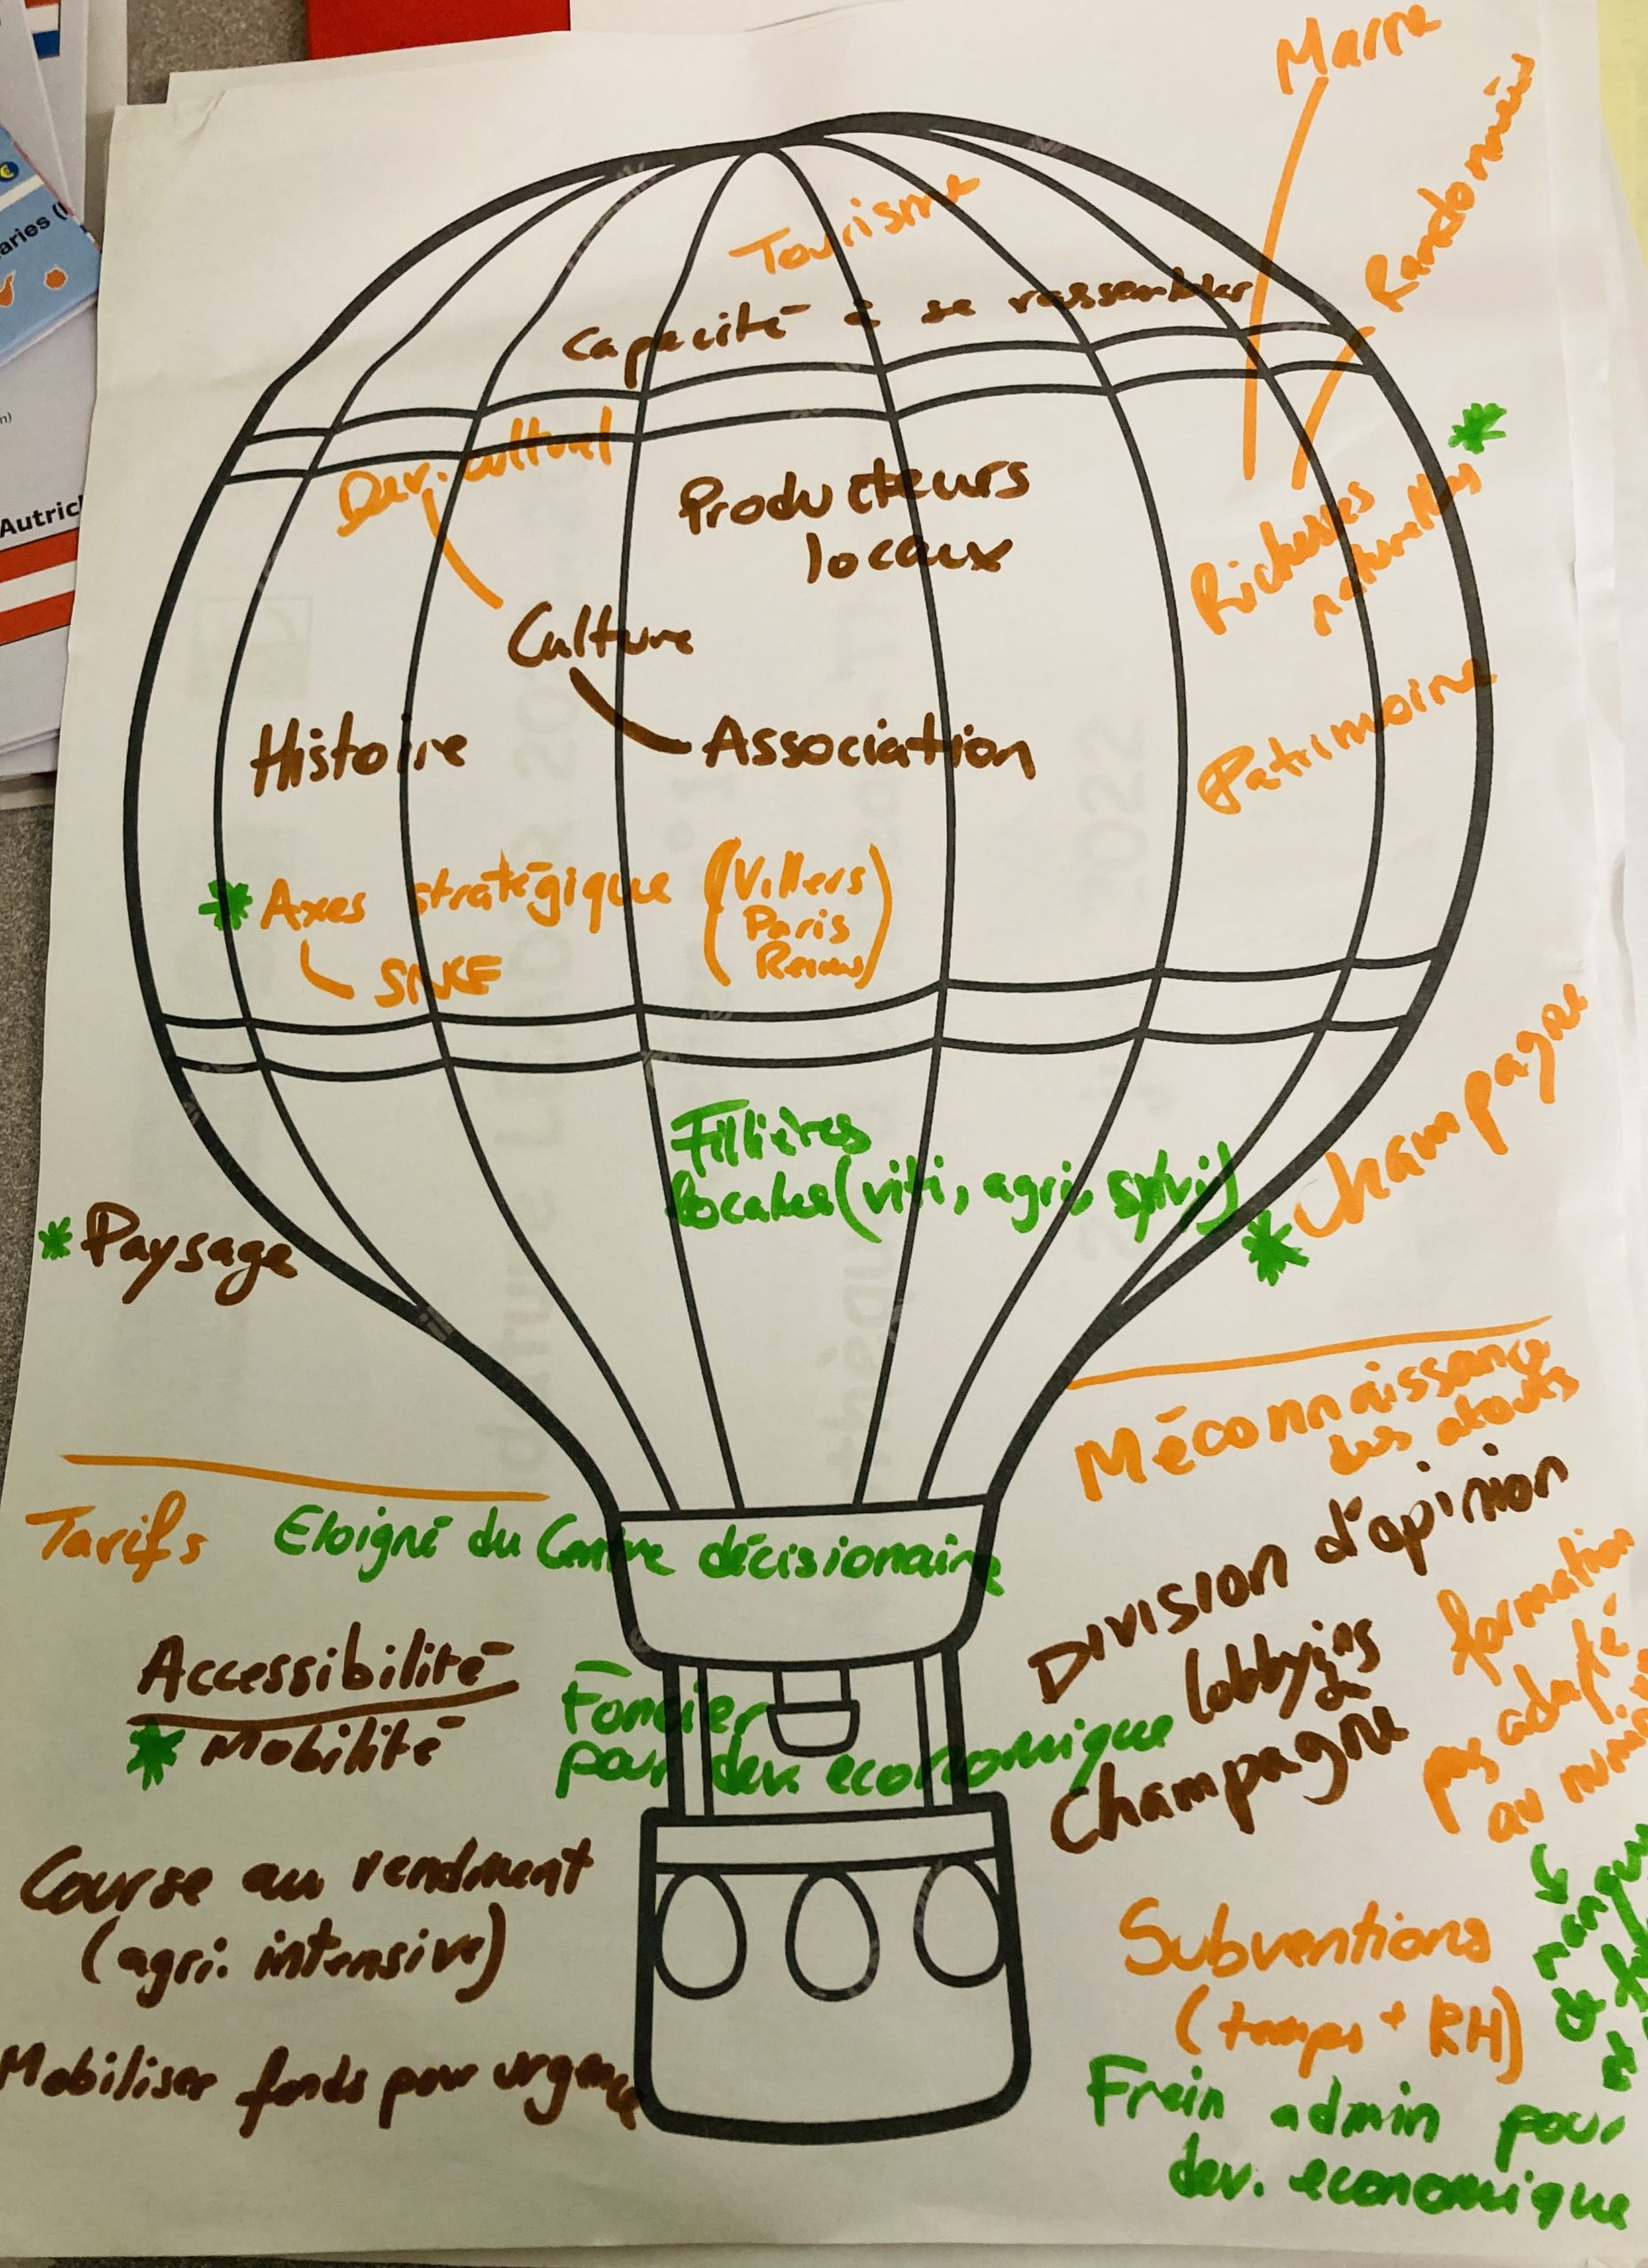 Marne
Randonnées
Tourisme
Capacité à se rassembler
Dev. culturel
Producteurs
locaux
Richesses
naturelles
Culture
Histoire
Association
Patrimoine
Axes stratégique (Villers
Paris
Reims)
SNCF
Champagne
Fillières
locales (viti, agri, sylvi)
Paysage
Méconnaissance
des atouts
Tarifs
Eloigné du Centre décisionaire
Division d'opinion
Accessibilité
Mobilité
Foncier
pour dev. economique
lobbyings
Champagne
formation
pas adapté
au
Course au rendment
(agri. intensive)
Subventions
(temps + RH)
Mobiliser fonds pour urgence
Frein admin pour
dev. economique
Autric
aries (